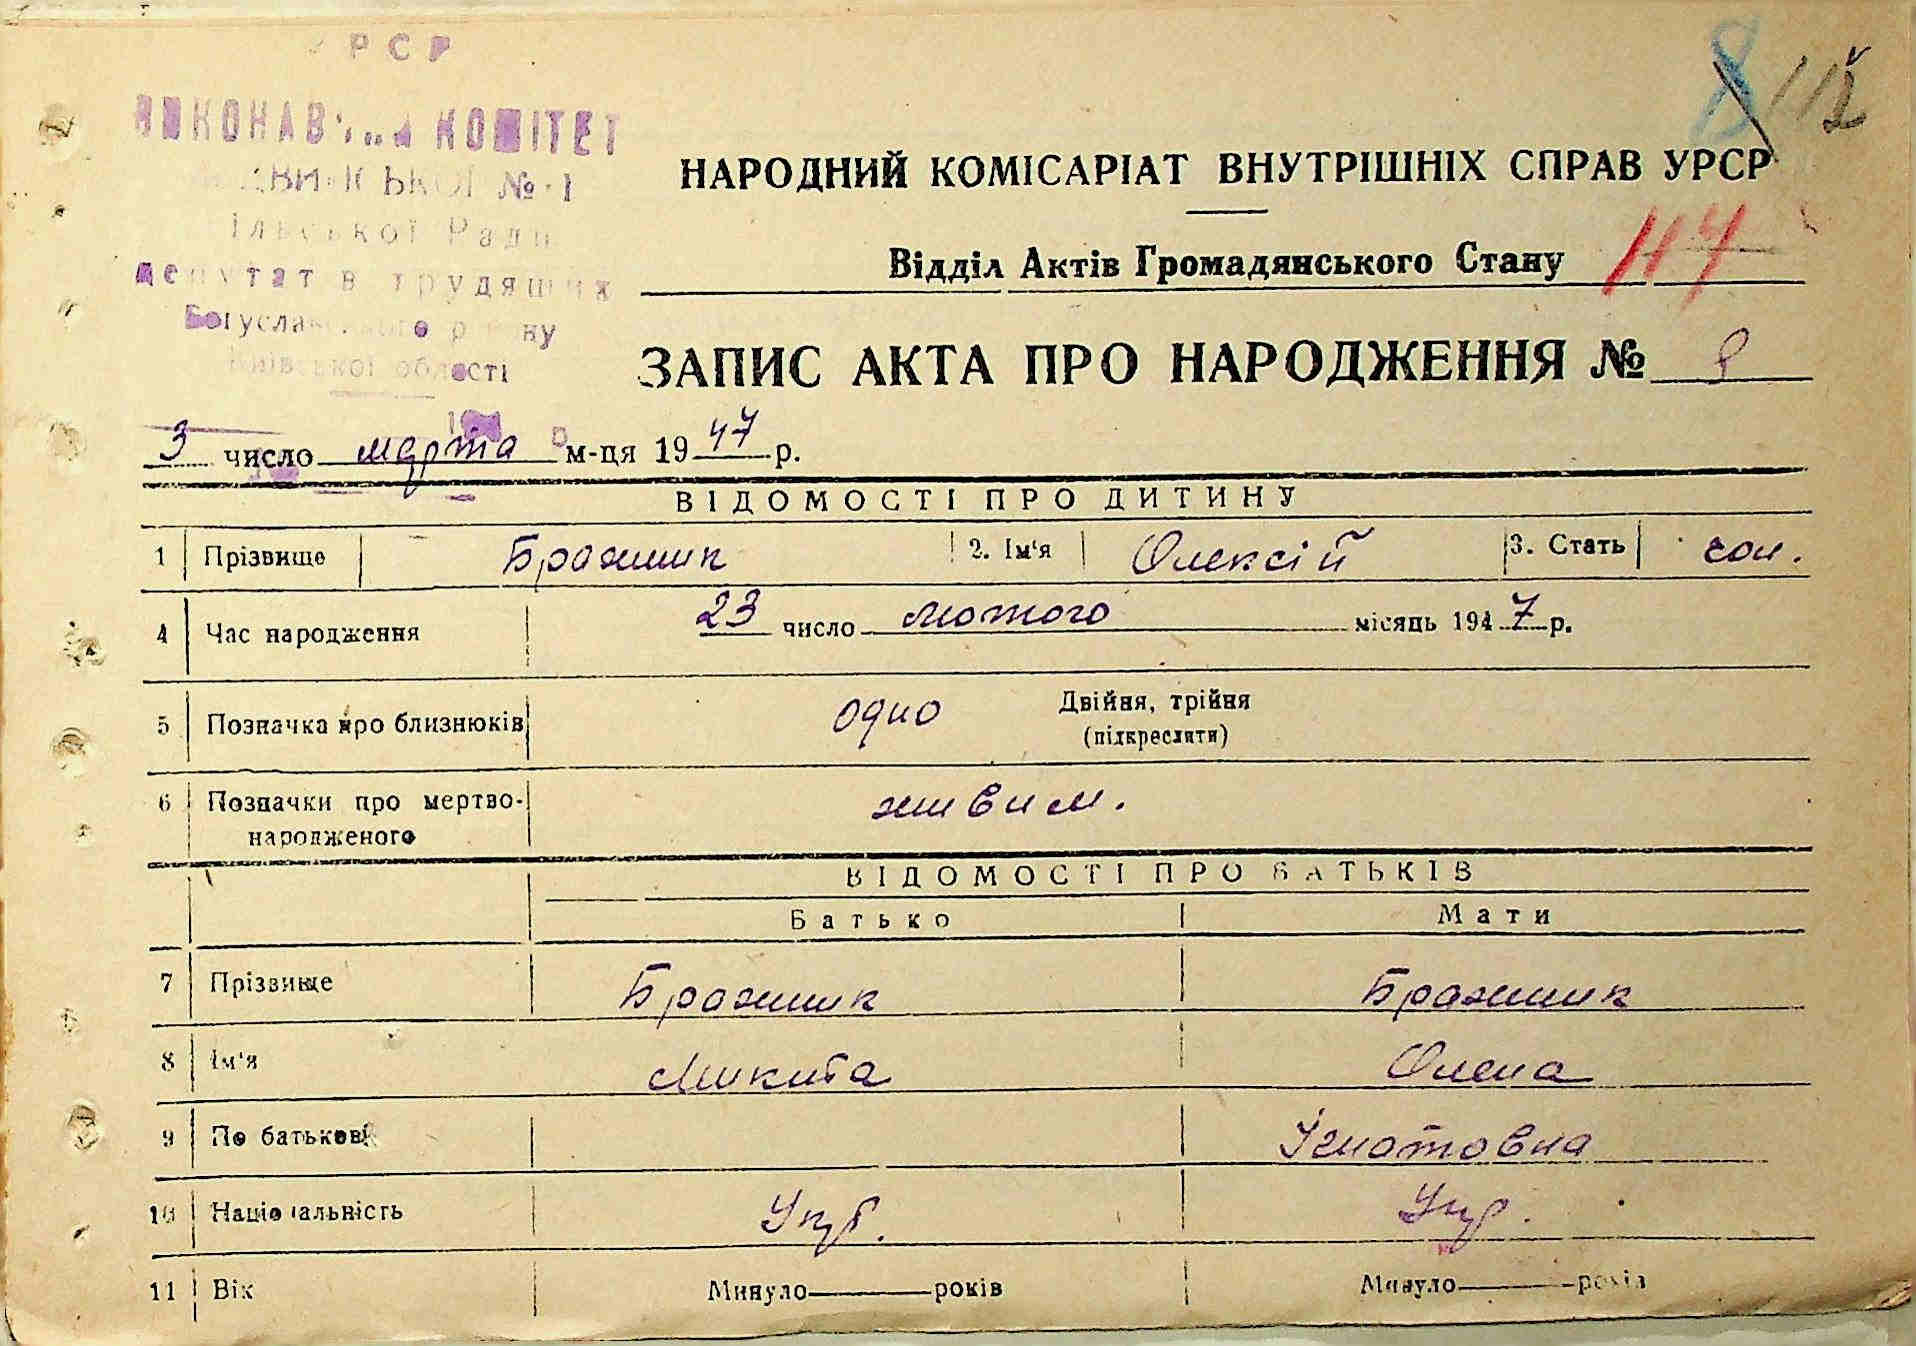 УРСР
ВИКОНАВЧИЙ КОМІТЕТ
№ 1
Сільської Ради
депутатів трудящих
Богуславського району
Київської області
8 112
НАРОДНИЙ КОМІСАРІАТ ВНУТРІШНІХ СПРАВ УРСР
Відділ Актів Громадянського Стану
ЗАПИС АКТА ПРО НАРОДЖЕННЯ № 9
3 число марта м-ця 1947 р.
ВІДОМОСТІ ПРО ДИТИНУ
1 Прізвище Бражник 2. Ім'я Олексій 3. Стать чол.
4 Час народження 23 число лютого місяць 1947 р.
5 Позначка про близнюків одно Двійня, трійня
(підкреслити)
6 Позначки про мертво-
народженого живим.
ВІДОМОСТІ ПРО БАТЬКІВ
Батько Мати
7 Прізвище Бражник Бражник
8 Ім'я Микита Олена
9 По батькові Ігнатовна
10 Національність Укр. Укр.
11 Вік Минуло років Минуло років